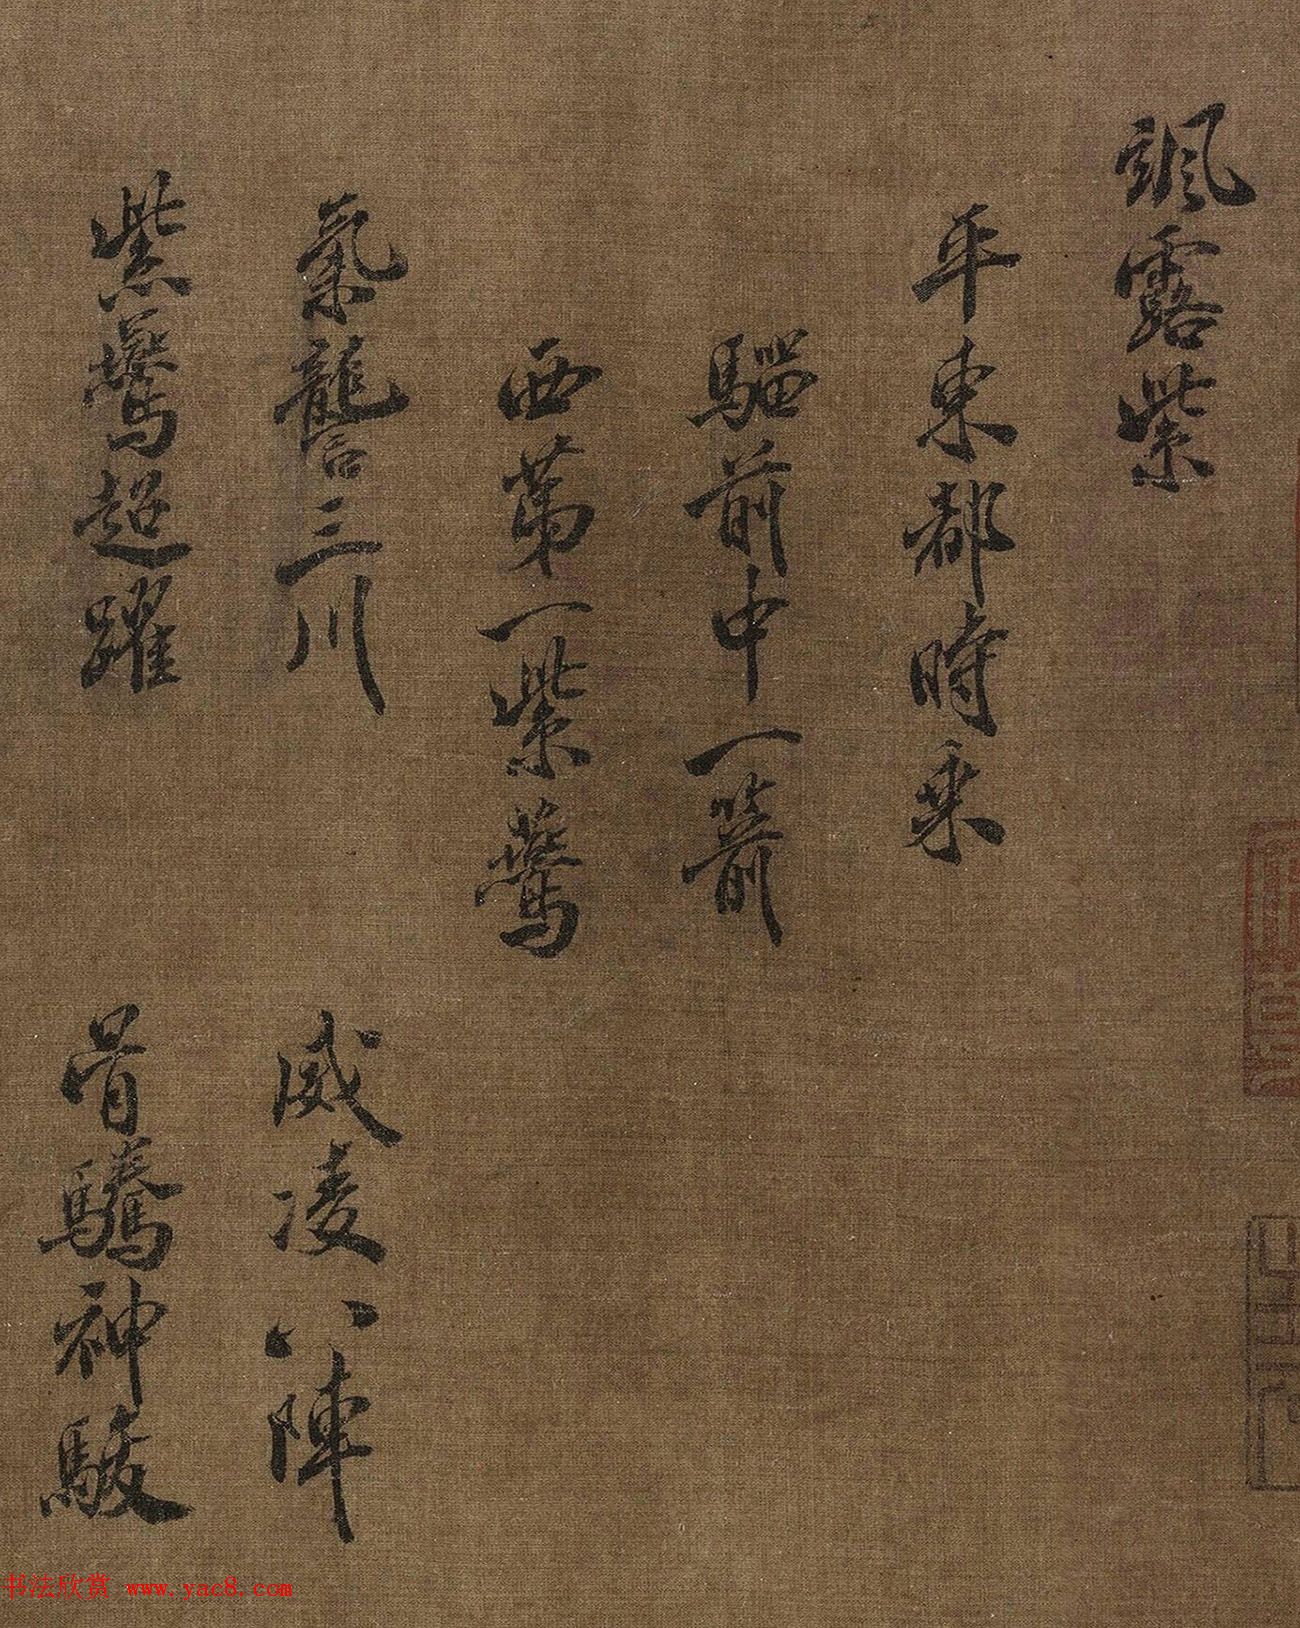 紫鷰超躍 骨驣神駿
氣讋三川 威凌八陣
西第一紫鷰
騮前中一箭
平東都時乘
颯露紫
书法欣赏 www.yac8.com